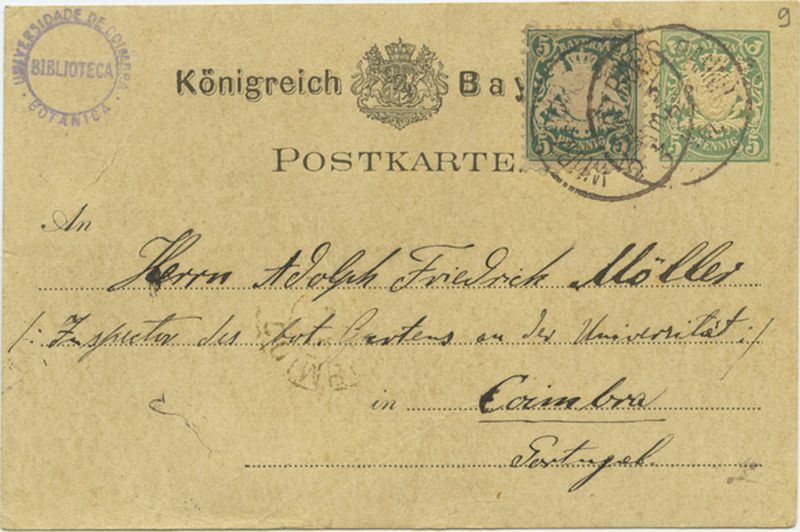 9
UNIVERSIDADE DE COIMBRA
BIBLIOTECA
BOTANICA
Königreich Bay
5 BAYERN 5
5 PFENNIG 5
5 PFENNIG 5
POSTKARTE.
An
Herrn Adolph Friedrich Möller
/: Inspector des bot. Gartens an der Universität :/
in Coimbra
Portugal.